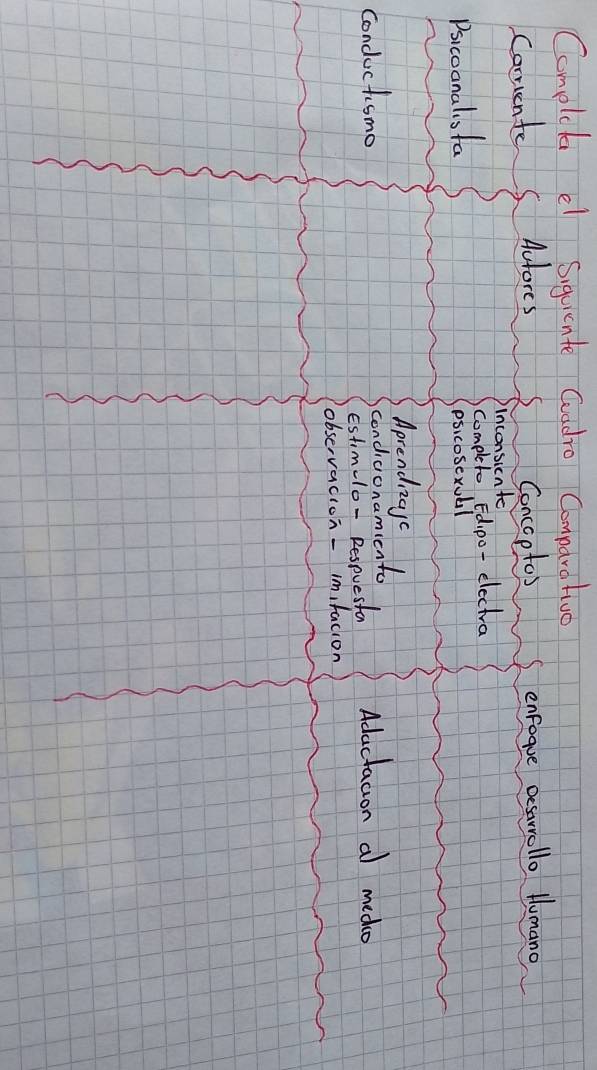 Completa el Siguiente Cuadro Comparativo
Corriente Autores Conceptos enfoque Desarrollo Humano
Psicoanalista
Inconsiente
Completo Edipo - electra
psicosexual
Conductismo
Aprendizaje
condicionamiento
Estimulo - Respuesta
observación - imitacion
Adactacion al medio